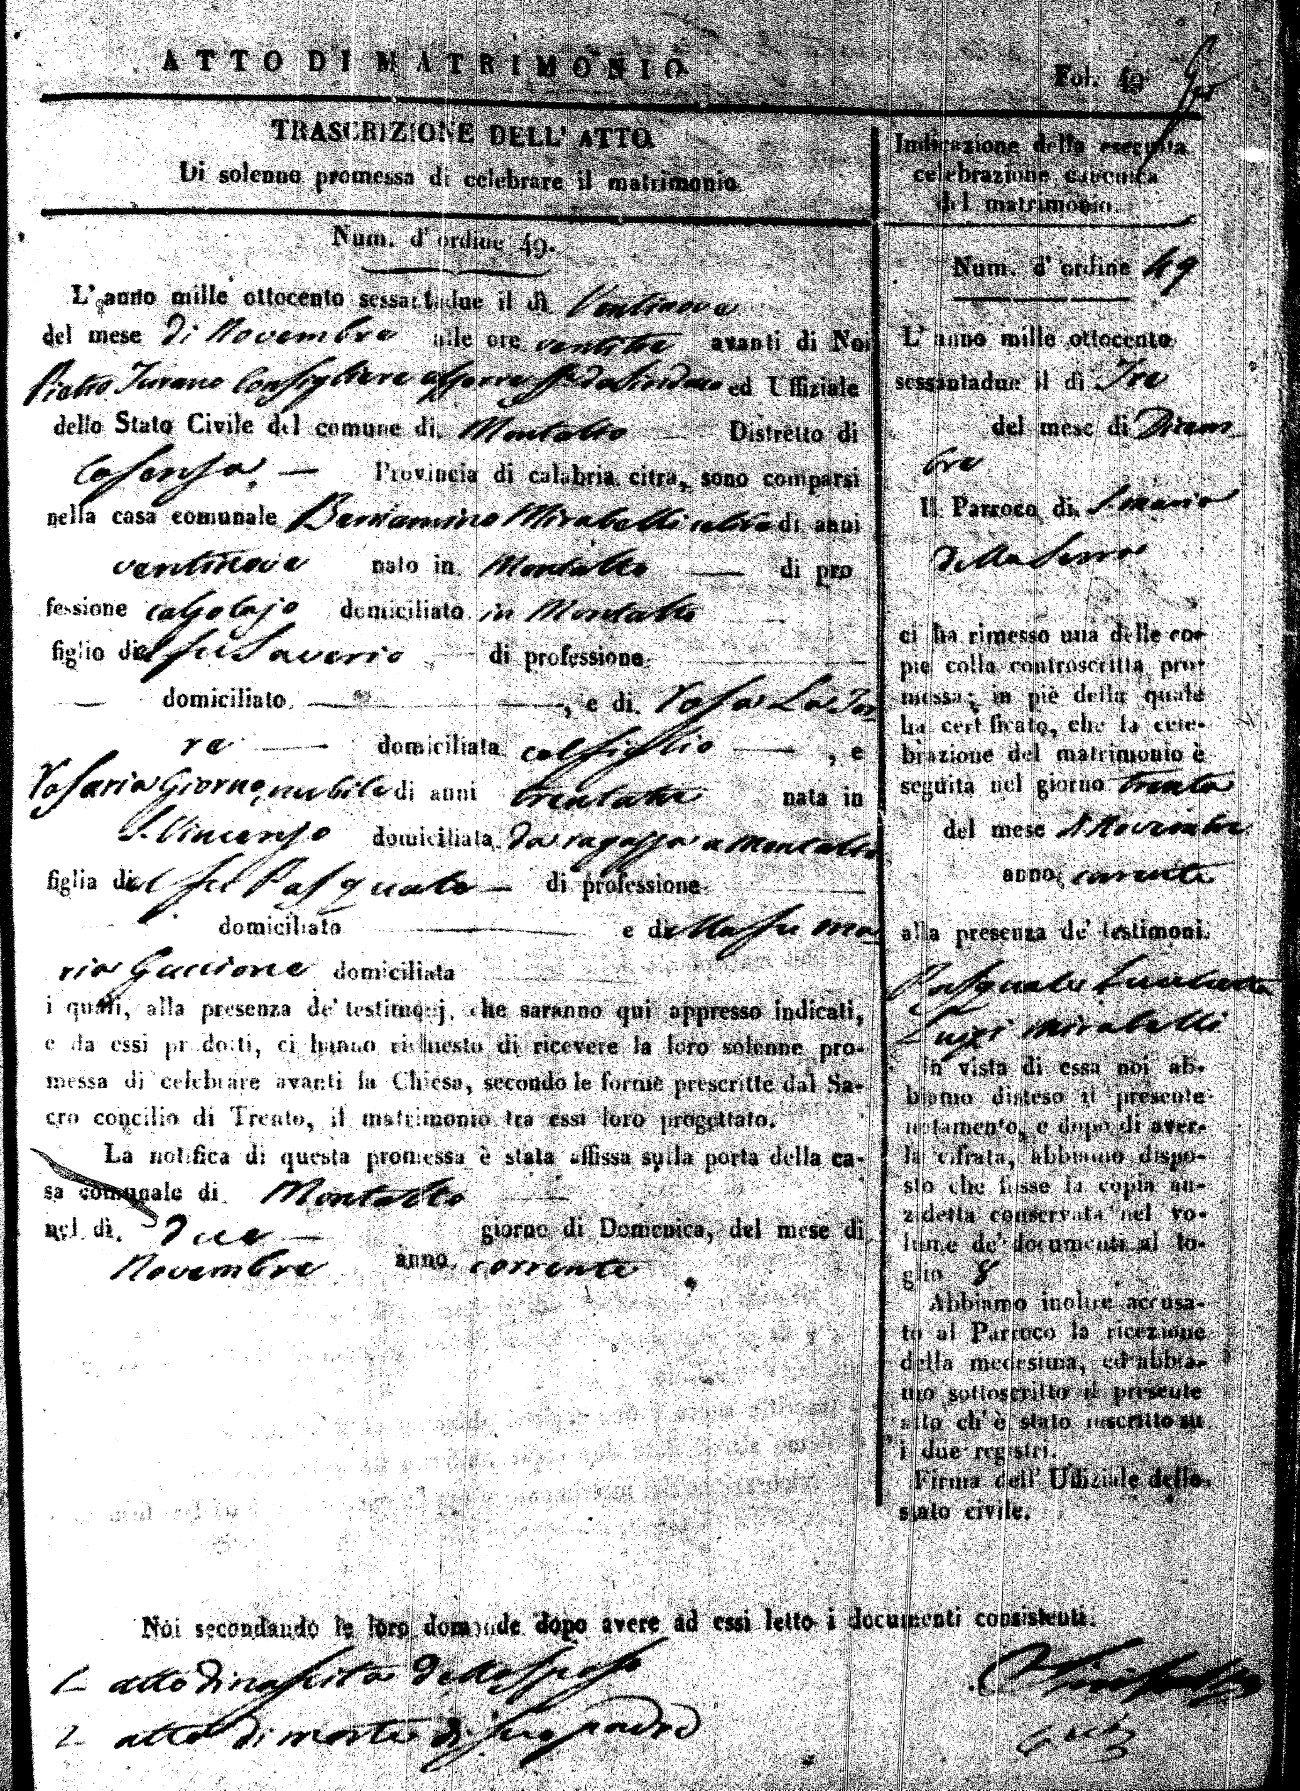 ATTO DI MATRIMONIO
Fol. 49
TRASCRIZIONE DELL' ATTO
Di solenne promessa di celebrare il matrimonio
Num. d' ordine 49.
L' anno mille ottocento sessantadue il dì Ventinove
del mese di Novembre alle ore ventitre avanti di Noi
Pietro Turano Consigliere ed Uffiziale
dello Stato Civile del comune di Montalto Distretto di
Cosenza. Provincia di calabria citra, sono comparsi
nella casa comunale Beniamino Mirabelli celibe di anni
ventinove nato in Montalto di pro
fessione calzolajo domiciliato in Montalto
figlio del fu Saverio di professione
domiciliato , e di Rosa La Tor
re domiciliata col figlio , e
Rosaria Giorno, nubile di anni trentatre nata in
S. Vincenzo domiciliata da ragazza a Montalto
figlia del fu Pasquale di professione
domiciliato e della fu Ma
ria Guccione domiciliata
i quali, alla presenza de' testimonj, che saranno qui appresso indicati,
e da essi prodotti, ci hanno richiesto di ricevere la loro solenne pro-
messa di celebrare avanti la Chiesa, secondo le forme prescritte dal Sa-
cro concilio di Trento, il matrimonio tra essi loro progettato.
La notifica di questa promessa è stata affissa sulla porta della ca-
sa comunale di Montalto
nel dì due giorno di Domenica, del mese di
Novembre anno corrente
Indicazione della eseguita
celebrazione canonica
del matrimonio.
Num. d' ordine 49
L' anno mille ottocento
sessantadue il dì Tre
del mese di Dicem
bre
Il Parroco di S. Maria
della Serra
ci ha rimesso una delle co-
pie colla controscritta pro-
messa; in piè della quale
ha certificato, che la cele-
brazione del matrimonio è
seguita nel giorno trenta
del mese di Novembre
anno corrente
alla presenza de' testimoni.
Pasquale
Luigi Mirabelli
In vista di essa noi ab-
biamo disteso il presente
notamento, e dopo di aver-
la cifrata, abbiamo dispo-
sto che fusse la copia an-
zidetta conservata nel vo-
lume de' documenti al fo-
glio 8
Abbiamo inoltre accusa-
to al Parroco la ricezione
della medesima, ed abbia-
mo sottoscritto il presente
atto ch' è stato inscritto su
i due registri.
Firma dell' Uffiziale dello
stato civile.
Noi secondando le loro domande dopo avere ad essi letto i documenti consistenti.
1 atto di nascita dello sposo
2 atto di morte di suo padre